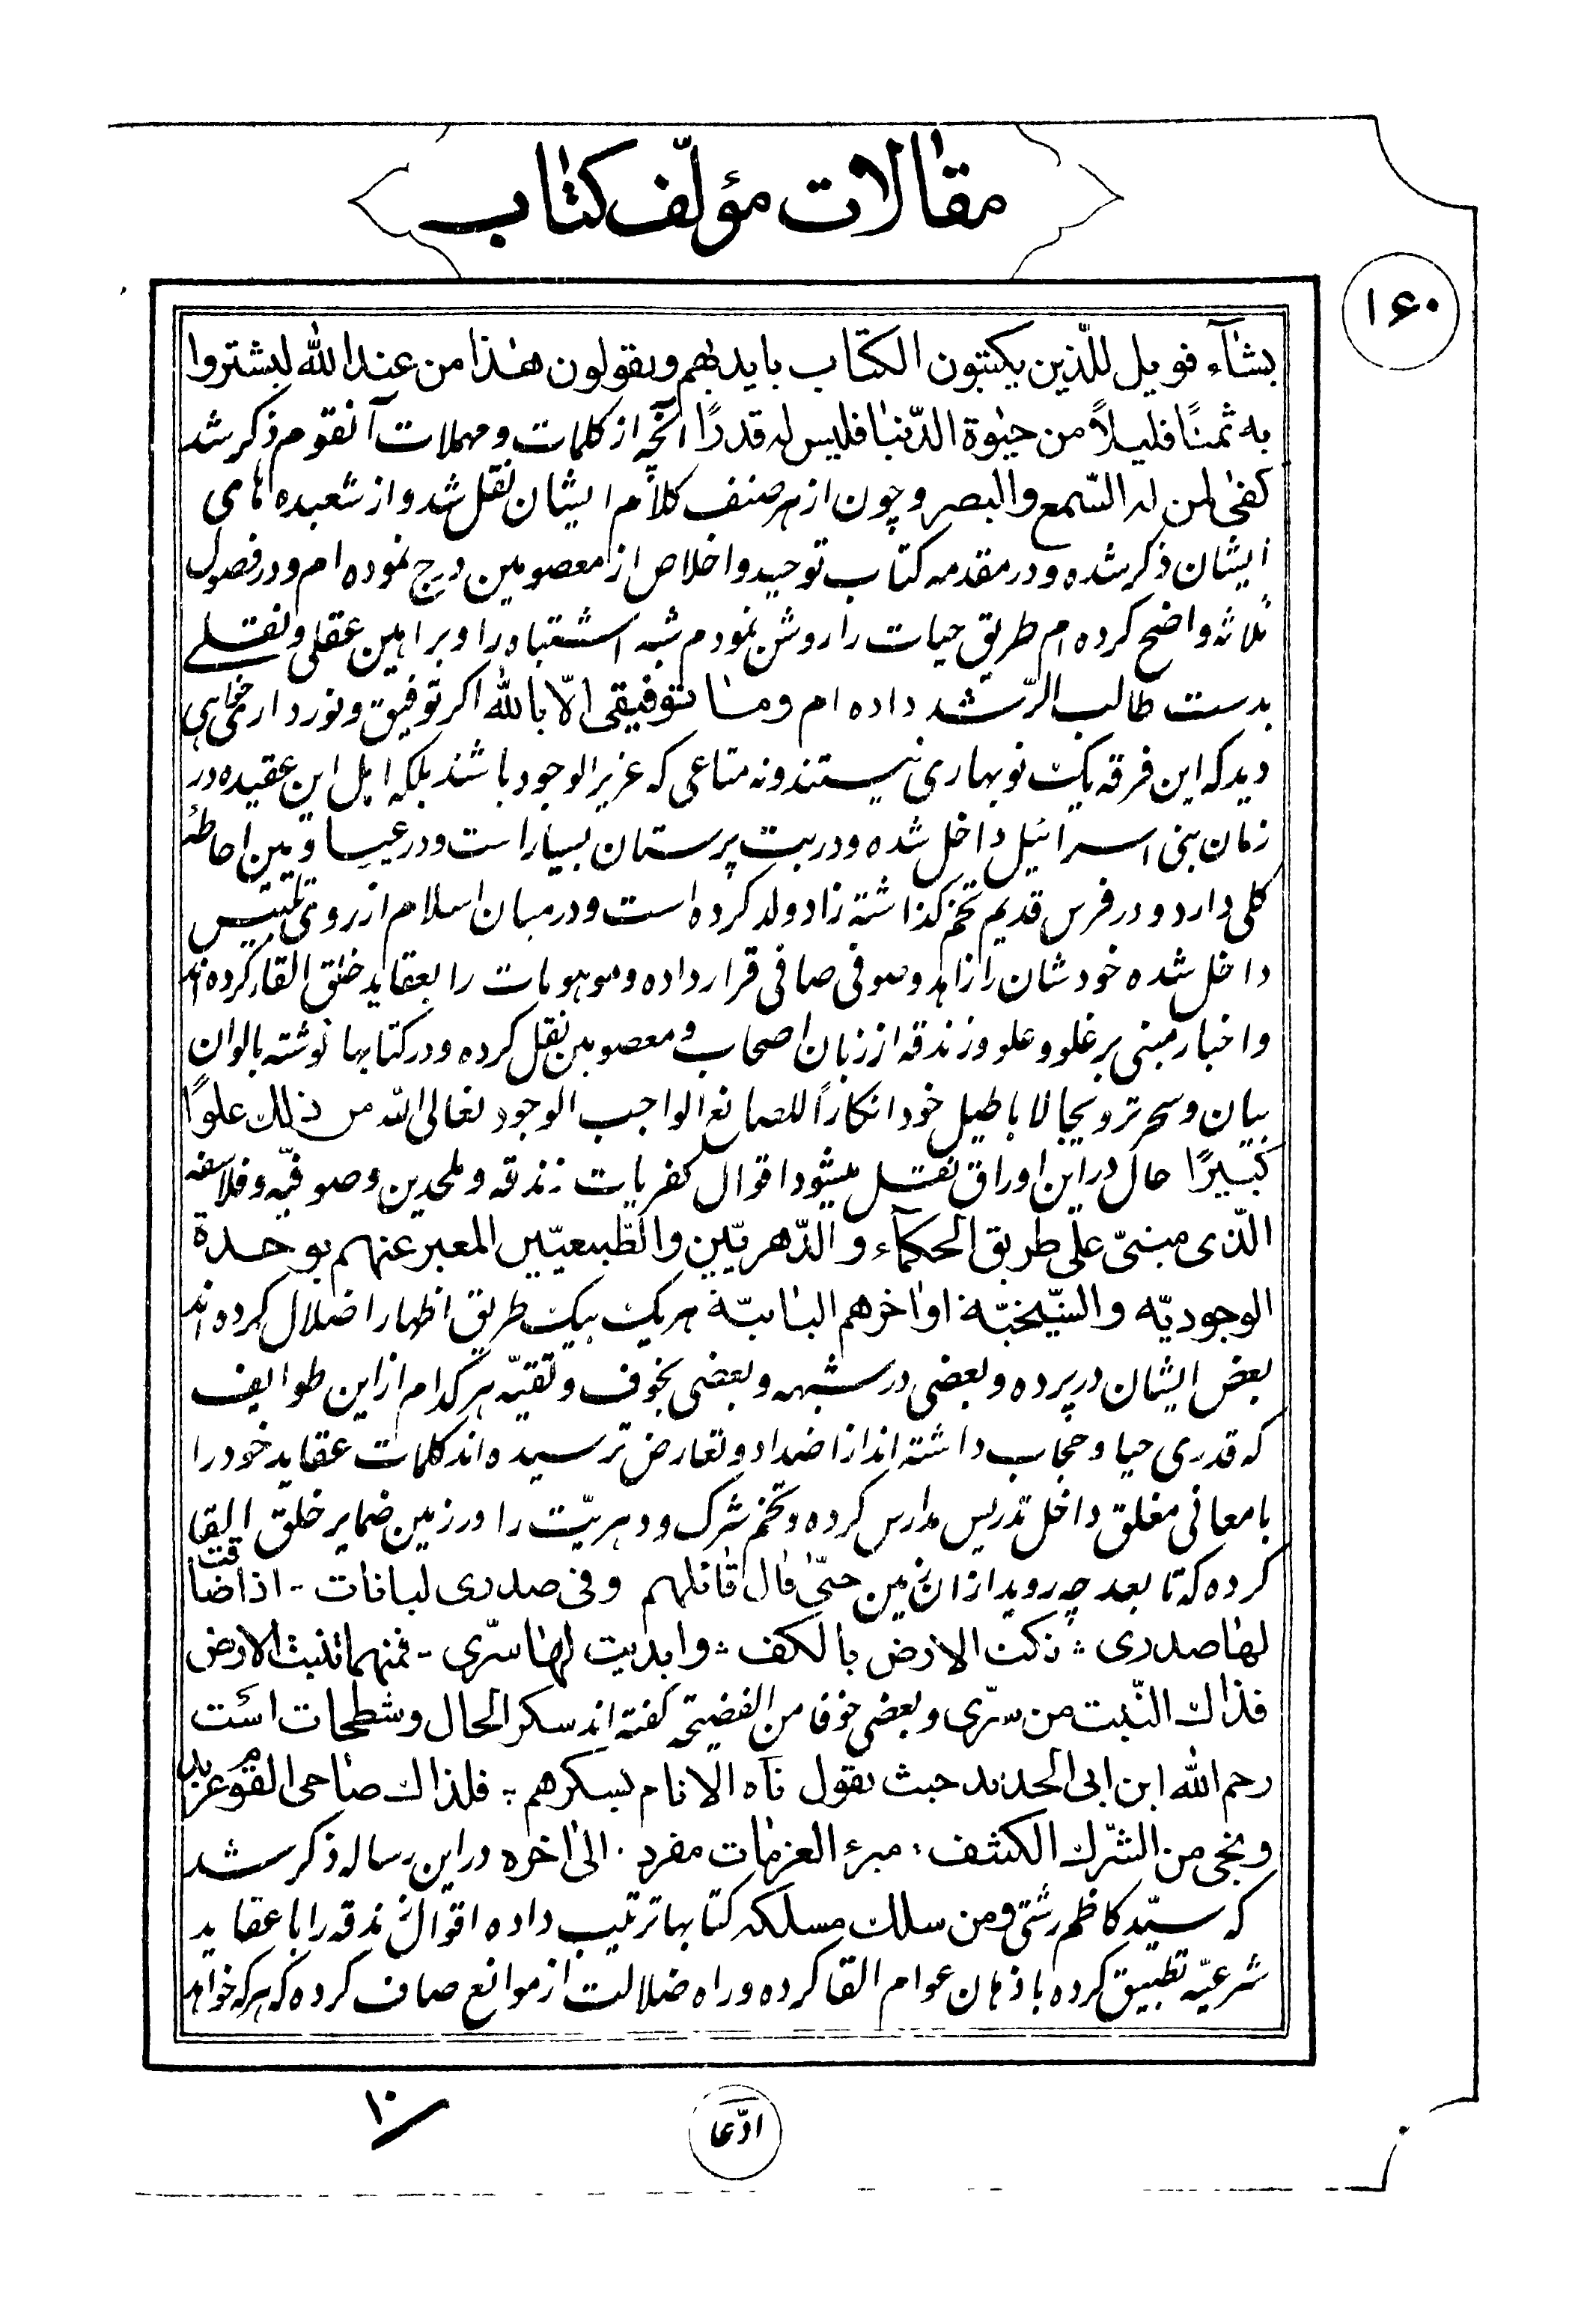 مقالات مؤلّف کتاب
۱۶۰
یشآء فویل للّذین یکتبون الکتاب بایدیهم ویقولون هذا من عندالله لیشتروا
به ثمنًا قلیلاً من حیٰوة الدّنیا فلیس له قدرًا آنچه از کلمات و مهملات آنقوم ذکر شد
کفیٰ لمن له السّمع والبصر و چون از هر صنف کلام ایشان نقل شد و از شعبده های
ایشان ذکر شده و در مقدمه کتاب توحید و اخلاص از معصومین درج نموده ام و در فصول
ثلاثه واضح کرده ام طریق حیات را روشن نمودم شبه اشتباه را و براهین عقلی و نقلے
بدست طالب الرّشد داده ام وما توفیقی الّا بالله اکر توفیق و نور داری خواهی
دید که این فرقه یک نوبهاری نیستند و نه متاعی که عزیز الوجود باشند بلکه اهل این عقیده در
زمان بنی اسرائیل داخل شده و در بت پرستان بسیار است و در عیساویین احاطهٔ
کلی دارد و در فرس قدیم تخم کذاشته زاد و ولد کرده است و در میان اسلام از روی تلبیس
داخل شده خودشان را زاهد و صوفی صافی قرار داده و موهومات را بعقاید خلق القاء کرده اند
و اخبار مبنی بر غلو و علو و زندقه از زبان اصحاب و معصومین نقل کرده و در کتابها نوشته بالوان
بیان و سحر ترویجا لاباطیل خود انکاراً للصانع الواجب الوجود تعالی الله من ذلک علوًا
کبیرًا حال در این اوراق نقل میشود اقوال کفریات زندقه و ملحدین و صوفیّه و فلاسفه
الّذی مبنیّ علی طریق الحکمآء و الدّهریّین والطّبیعیّین المعبر عنهم بوحدة
الوجودیّه والشّیخیّة اواخرهم البابیّة هر یک بیک طریق اظهار اضلال کرده اند
بعض ایشان در پرده و بعضی در شبهه و بعضی بخوف و تقیّه هر کدام از این طوایف
که قدری حیا و حجاب داشته اند از اضداد و تعارض ترسیده اند کلمات عقاید خود را
با معانی مغلق داخل تدریس مدارس کرده و تخم شرک و دهریّت را در زمین ضمایر خلق القا
کرده که تا بعد چه روید از ان زمین حتّیٰ قال قائلهم وفی صدری لبانات - اذا ضاقت
لها صدری ؞ نکت الارض بالکف ؞ وابدیت لها سرّی - فمنهما تنبت الارض
فذاک النّبت من سرّی و بعضی خوفا من الفضیحة کفته اند سکر الحال و شطحات است
رحم الله ابن ابی الحدید حیث یقول تاه الانام بسکرهم ؞ فلذاک صاحی القوم عربد
ونجی من الشّرک الکثیف ؞ مجرء العزمات مفرد . الی اخره در این رساله ذکر شد
که سیّد کاظم رشتی ومن سلک مسلکه کتابها ترتیب داده اقوال زندقه را با عقاید
شرعیّه تطبیق کرده باذهان عوام القا کرده و راه ضلالت از موانع صاف کرده که هر که خواهد
ادّعا
۱۰